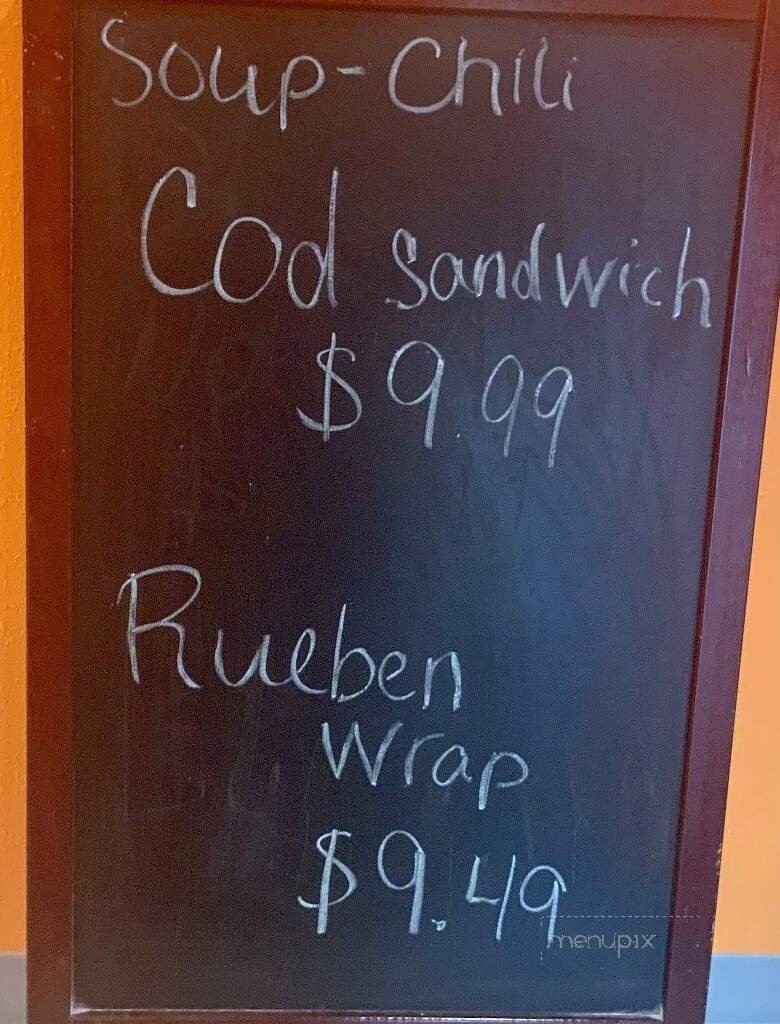 Soup-Chili
Cod Sandwich
$9.99
Rueben
Wrap
$9.49
menupix